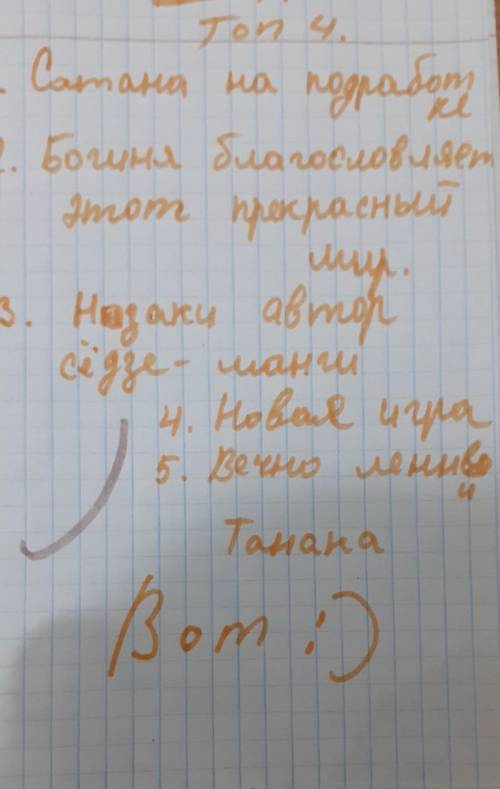 Топ 4.
1. Сатана на подработ
ке
2. Богиня благословляет
этот прекрасный
мир.
3. Нозаки автор
сёдзе-манги
4. Новая игра
5. Вечно ленив
и
Танана
Вот :)